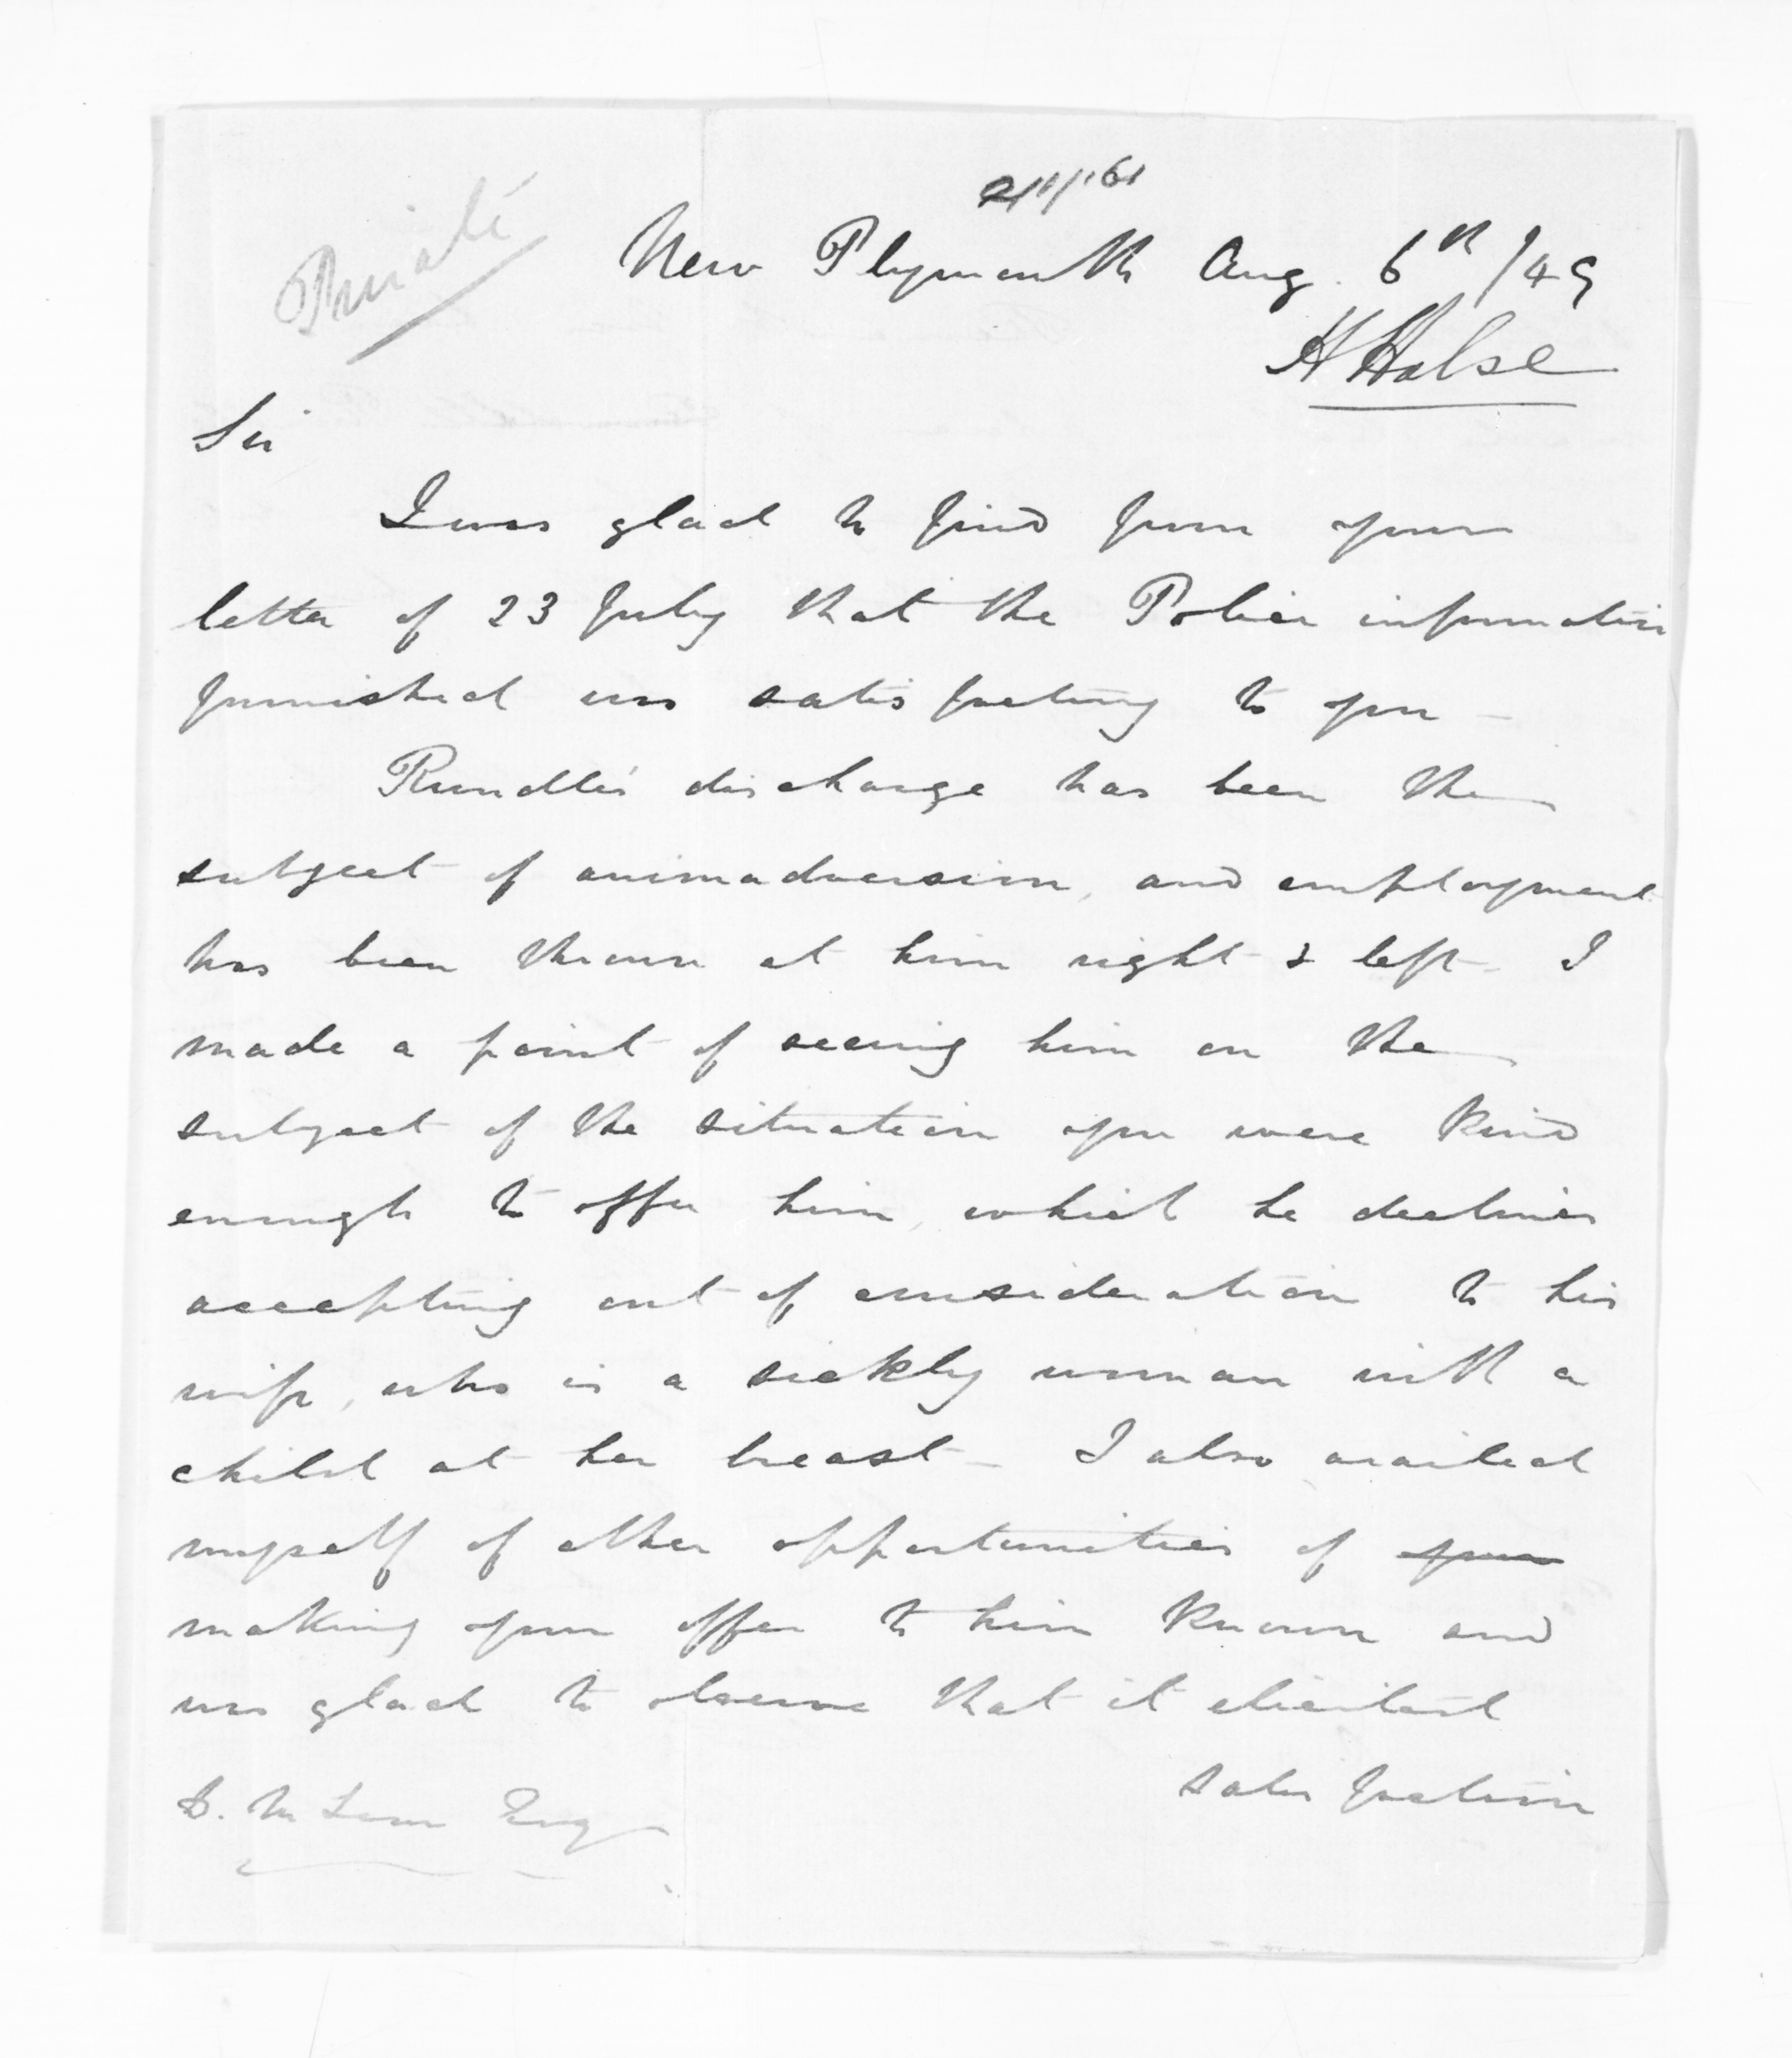 Private
New Plymouth Aug. 6th/49
H Halse
Sir
I was glad to find from your
letter of 23 July that the Police information
furnished was satisfactory to you -
Rundle's discharge has been the
subject of animadversion, and employment
has been thrown at him right & left. I
made a point of seeing him on the
subject of the situation you were kind
enough to offer him, which he declines
accepting out of consideration to his
wife, who is a sickly woman with a
child at her breast - I also availed
myself of other opportunities of your
making your offer to him known and
was glad to observe that it elicited
satisfaction
D. McLean Esq